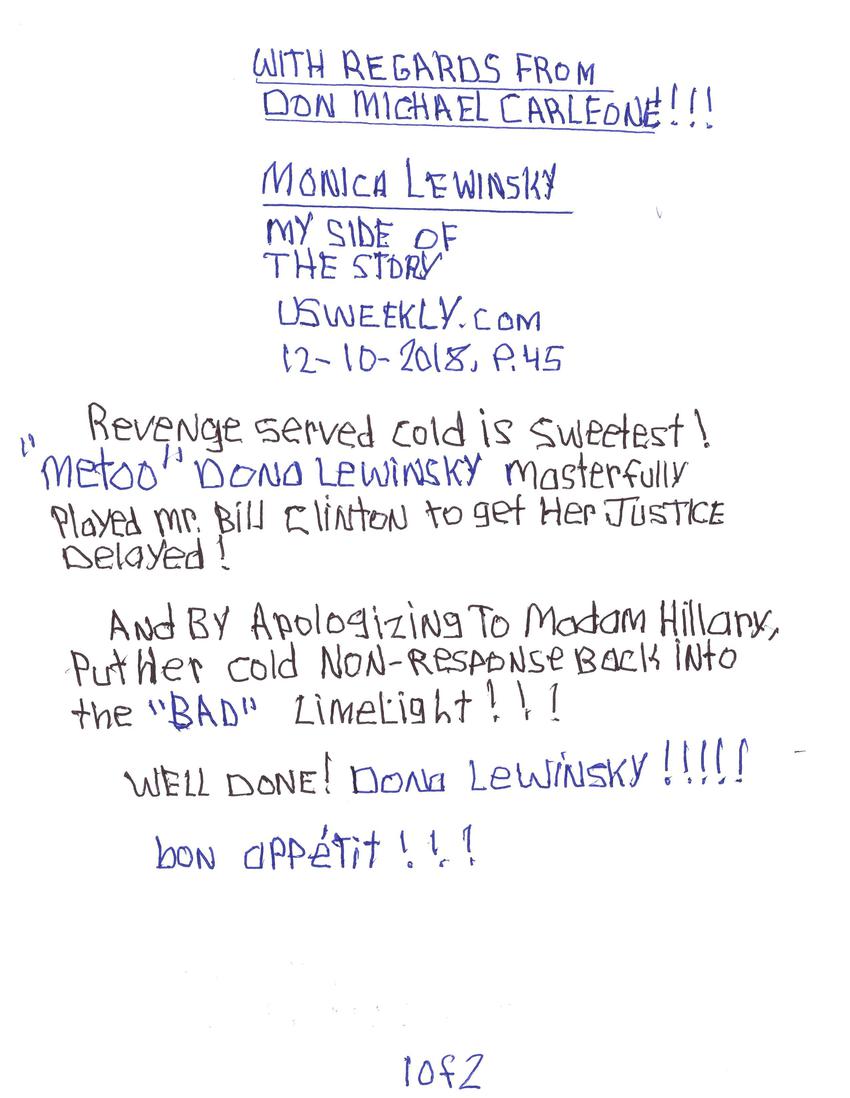 WITH REGARDS FROM
DON MICHAEL CARLEONE!!!
MONICA LEWINSKY
MY SIDE OF
THE STORY
USWEEKLY.COM
12-10-2018, P.45
Revenge served cold is sweetest!
"Metoo" Dona Lewinsky masterfully
Played mr. Bill Clinton to get Her JUSTICE
Delayed!
And By Apologizing To Madam Hillary,
Put Her cold NON-RESPONSE Back into
the "BAD" Limelight!!!
WELL DONE! Dona Lewinsky!!!!!
bon appétit!!!
1 of 2